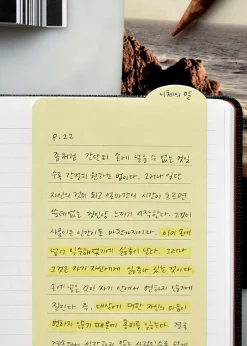 니체의 말
p.22
좀처럼 간단히 손에 넣을 수 없는 것일
수록 간절히 원하는 법이다. 그러나 일단
자신의 것이 되고 얼마간의 시간이 흐르면
쓸데없는 것인양 느끼기 시작한다. 그것이
사물이든 인간이든 마찬가지이다. 이미 손에
넣어 익숙해졌기에 싫증이 난다. 그러나
그것은 자기 자신에게 싫증나 있는 것이다.
손에 넣은 것이 자기 안에서 변하지 않기에
질린다. 즉, 대상에 대한 자신의 마음이
변하지 않기 때문에 흥미를 잃는다. 결국